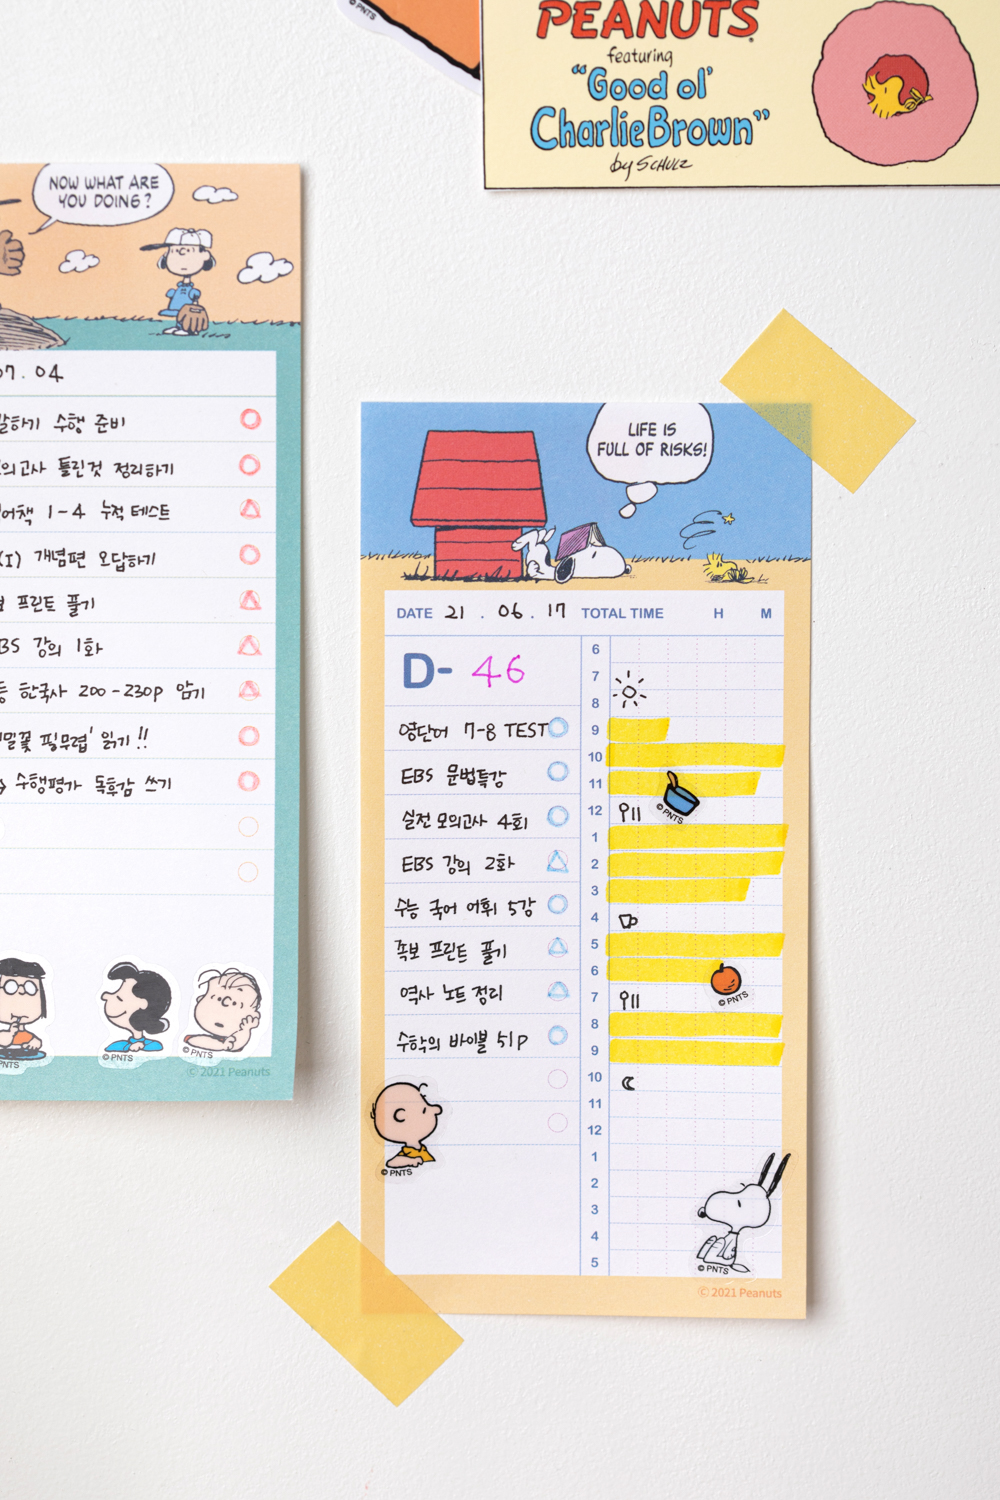 © PNTS
PEANUTS
featuring
"Good ol'
Charlie Brown"
by SCHULZ
NOW WHAT ARE
YOU DOING?
07. 04
말하기 수행 준비
모의고사 틀린것 정리하기
어책 1-4 누적 테스트
(I) 개념편 오답하기
프린트 풀기
EBS 강의 1화
한국사 200-230p 암기
밀꽃 필무렵' 읽기!!
수행평가 독후감 쓰기
© PNTS
© PNTS
© PNTS
© 2021 Peanuts
LIFE IS
FULL OF RISKS!
DATE 21 . 06. 17 TOTAL TIME H M
D- 46
영단어 7-8 TEST
EBS 문법특강
실전 모의고사 4회
EBS 강의 2화
수능 국어 어휘 5강
족보 프린트 풀기
역사 노트 정리
수학의 바이블 51p
6
7
8
9
10
11
12
1
2
3
4
5
6
7
8
9
10
11
12
1
2
3
4
5
© PNTS
© PNTS
© PNTS
© PNTS
© 2021 Peanuts